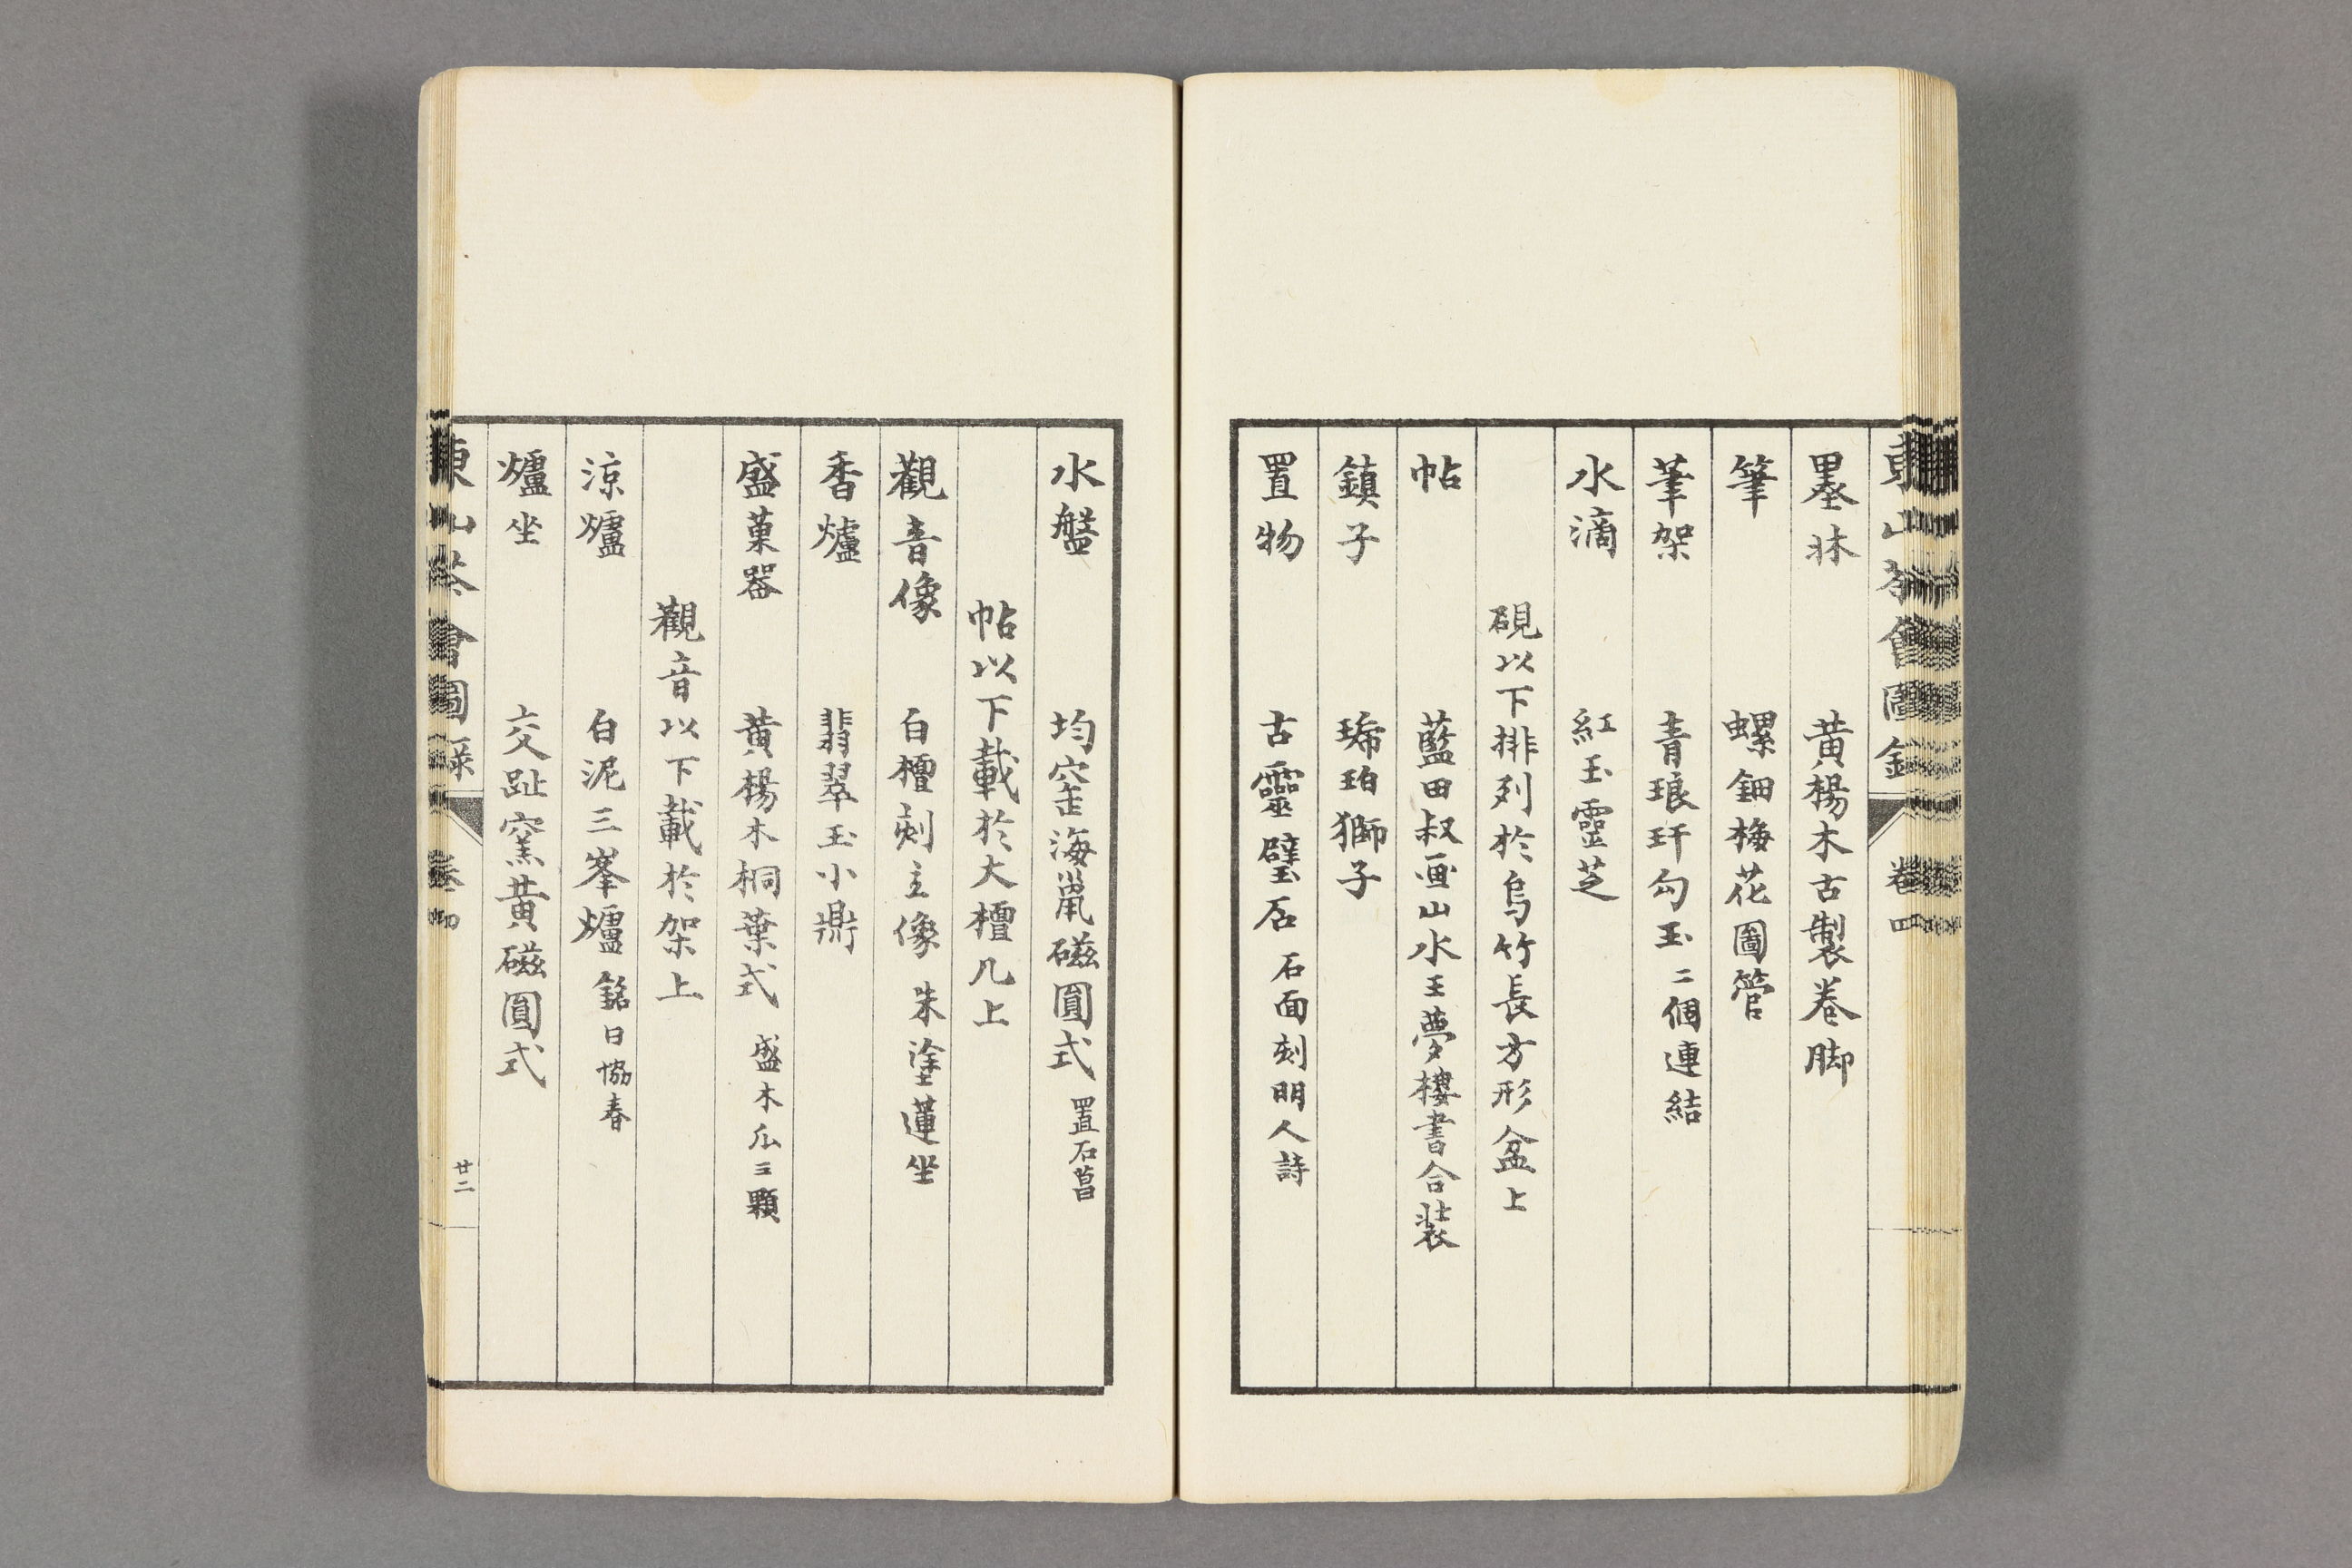 墨牀 黄楊木古製巻脚
筆 螺鈿梅花圖管
筆架 青琅玕勾玉 二個連結
水滴 紅玉靈芝
硯以下排列於烏竹長方形盆上
帖 藍田叔画山水王夢樓書合装
鎮子 琋珀獅子
置物 古靈璧石 石面刻明人詩
水盤 均窯海鼠磁圓式 置石菖
帖以下載於大檀几上
觀音像 白檀刻立像 朱塗蓮坐
香爐 翡翠玉小鼎
盛菓器 黄楊木桐葉式 盛木瓜三顆
觀音以下載於架上
涼爐 白泥三峯爐 銘曰協春
爐坐 交趾窯黄磁圓式
東山茶會圖録 卷四 廿二